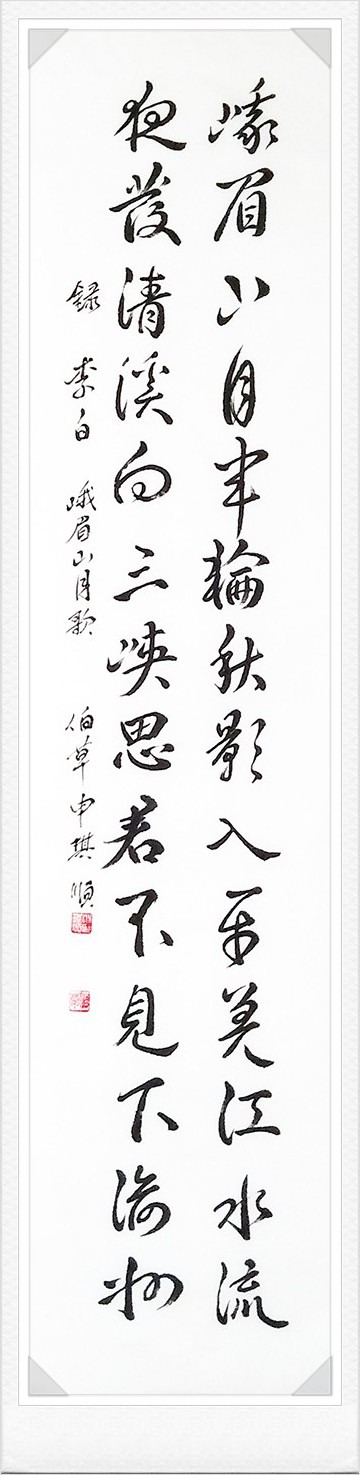 峨眉山月半輪秋影入平羌江水流
夜發清溪向三峽思君不見下渝州
錄 李白 峨眉山月歌 伯草申琪順